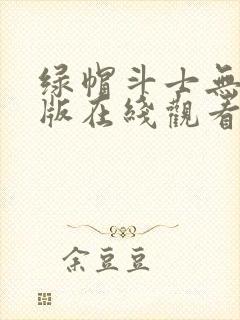 绿帽斗士無
版在綫觀看
余豆豆